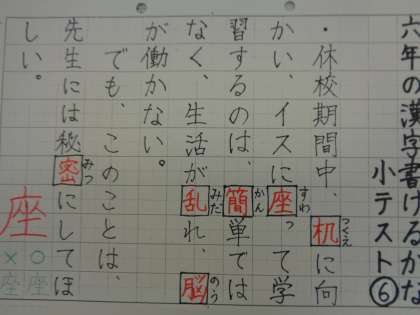 六年の漢字書けるかな
小テスト⑥
・休校期間中、机に向
つくえ
かい、イスに座って学
すわ
習するのは、簡単では
かん
なく、生活が乱れ、脳
みだ
のう
が働かない。
でも、このことは、
先生には秘密にしてほ
みつ
しい。
座
×○
座座